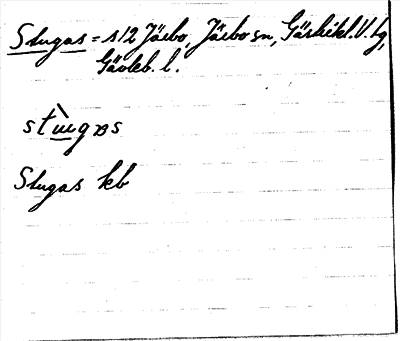 Stugas = s/2 Järbo, Järbo sn, Gästrikl. V. tg,
Gävleb. l.
Stugas kb